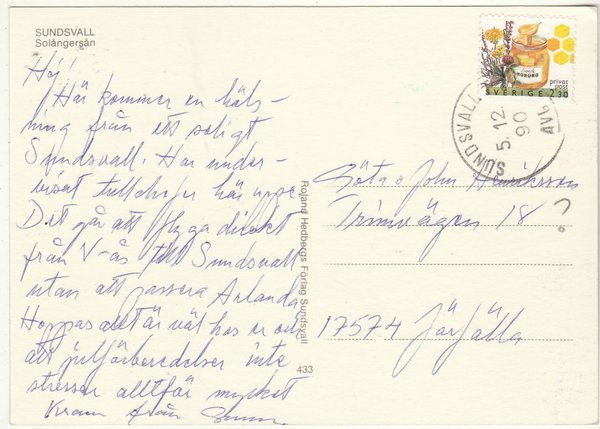 SUNDSVALL
Solångersån
Hej!
Här kommer en häls-
ning från ett soligt
Sundsvall. Har under-
visat tullchefer här uppe
Det går att flyga direkt
från V-ås till Sundsvall
utan att passera Arlanda
Hoppas allt är väl hos er och
att julförberedelser inte
stressar alltför mycket
Kram från
Roland Hedbergs Förlag Sundsvall
433
SVERIGE 2.30
privat
post
HONUNG
SUNDSVALL
5.12.
90
AVB
Göta o John Henriksson
Trimvägen 18
?
17574 Järfälla